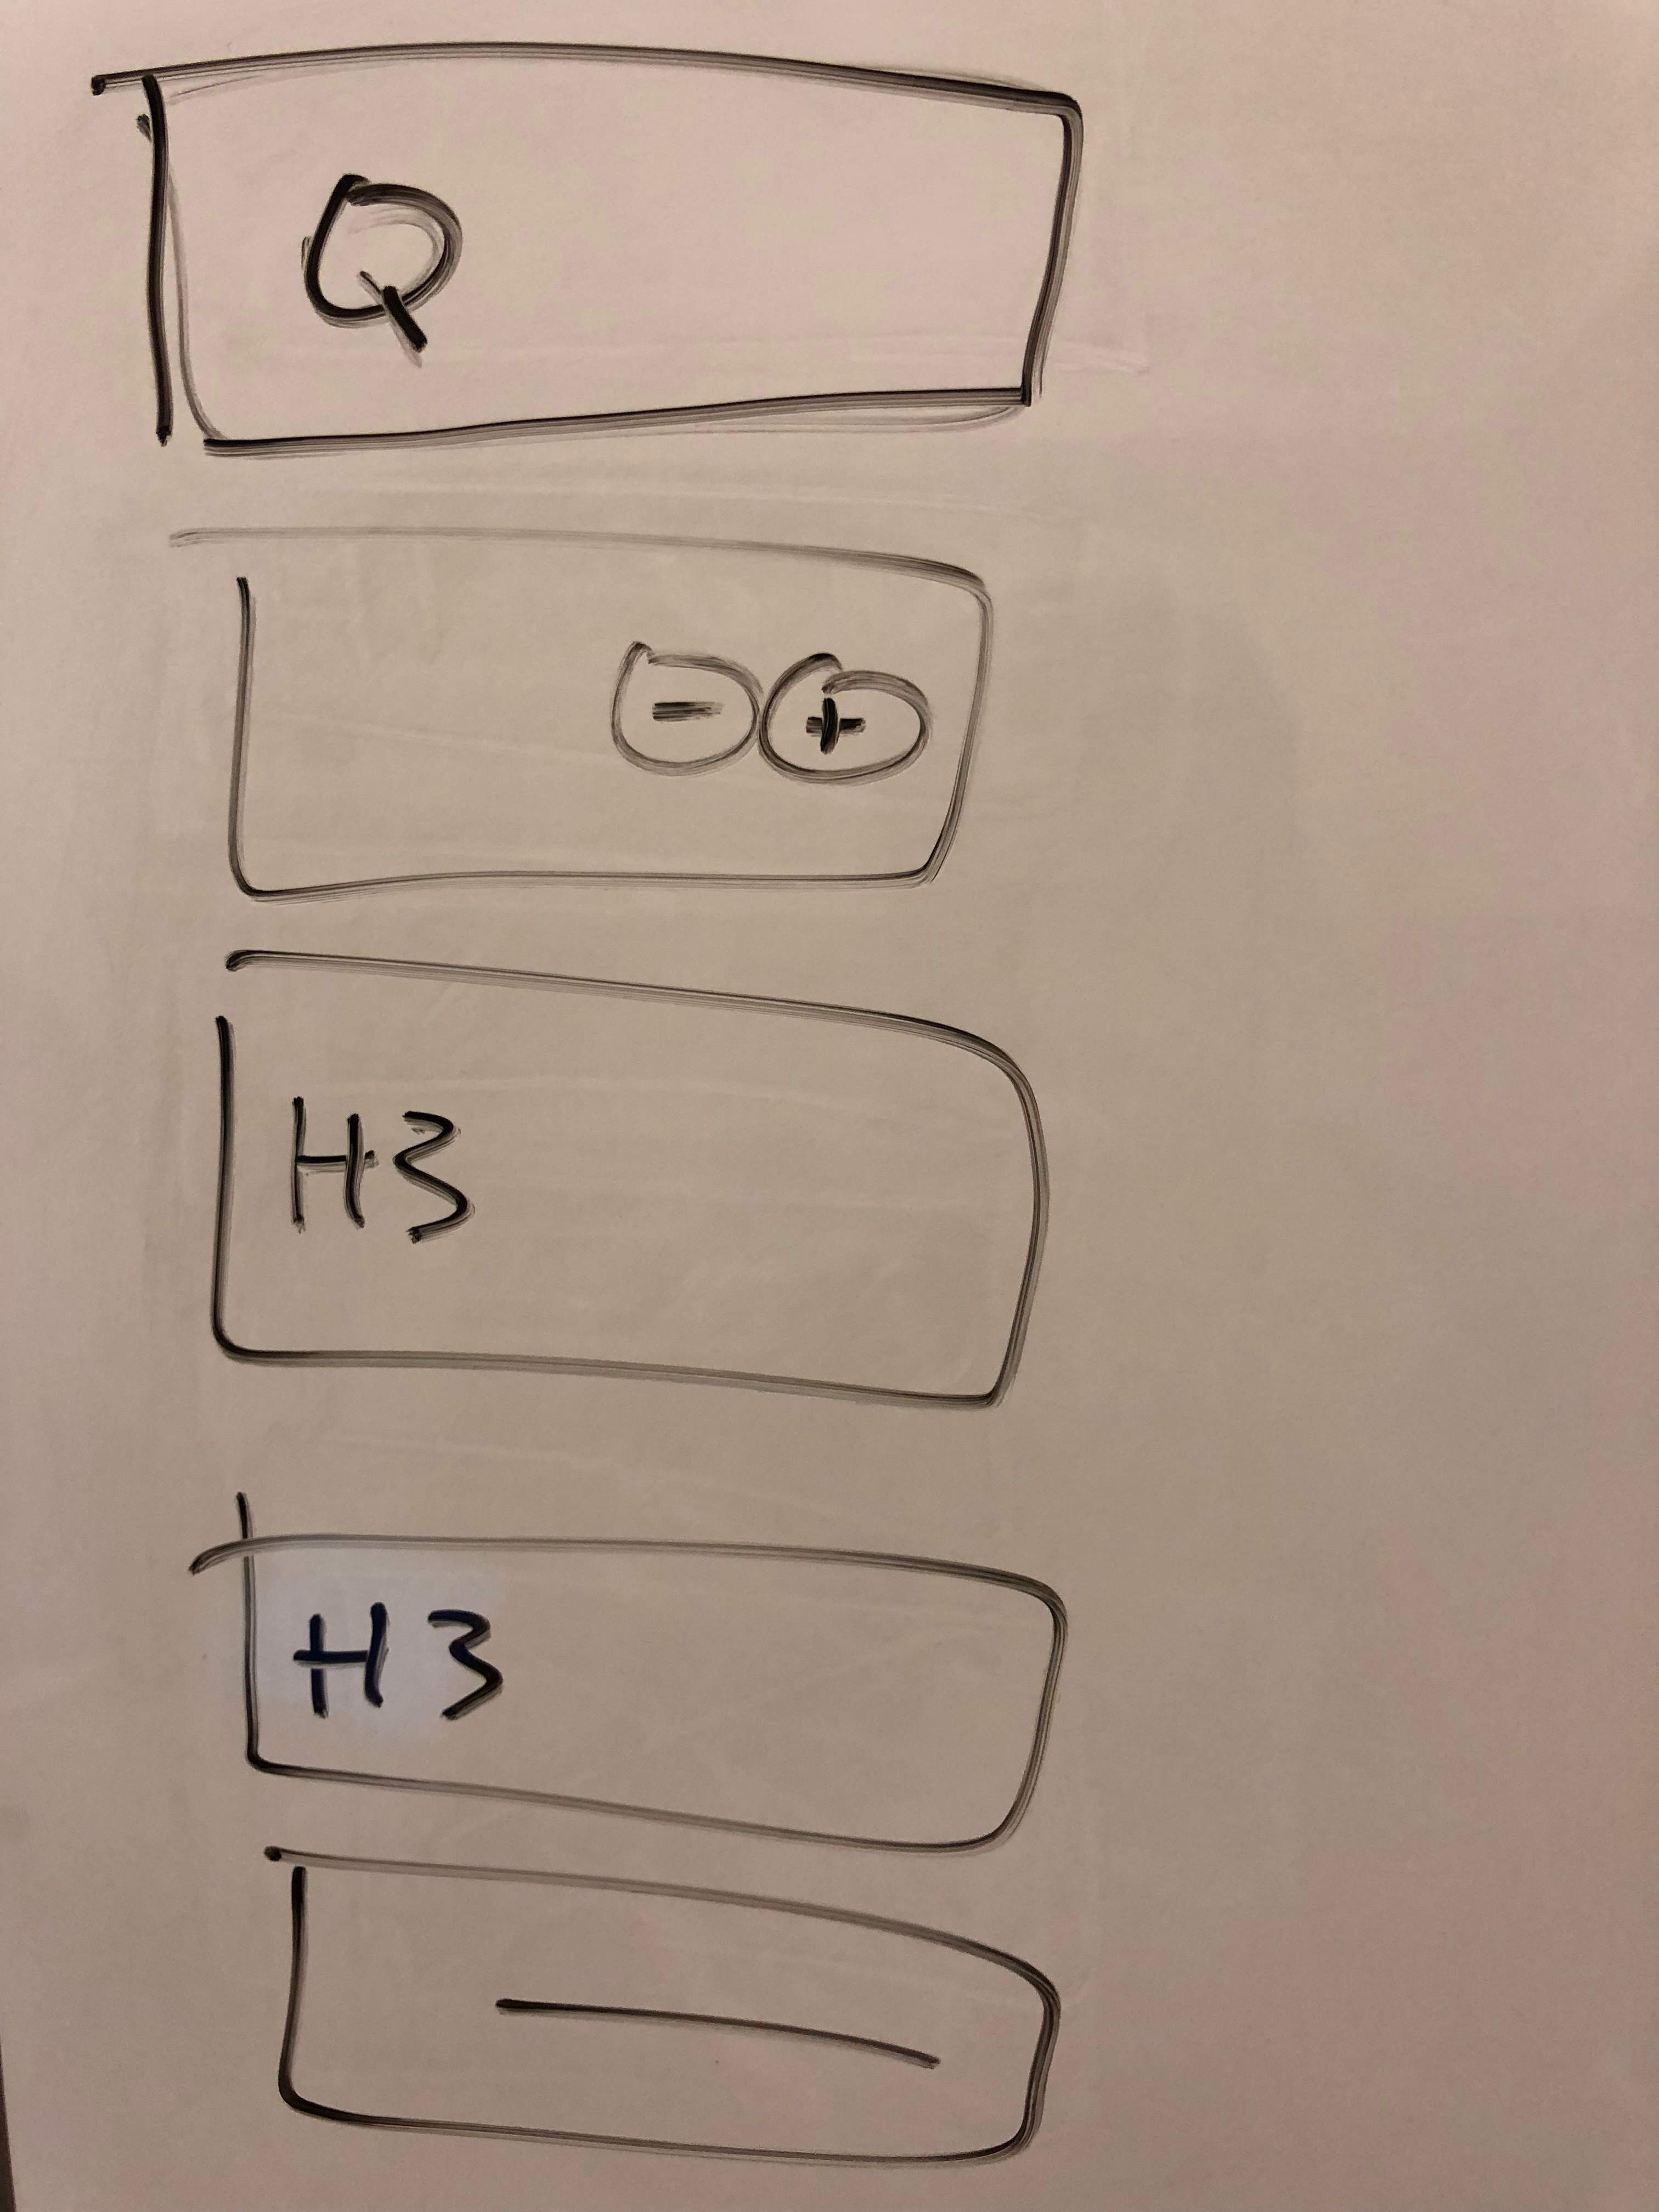 Q
- +
H3
H3